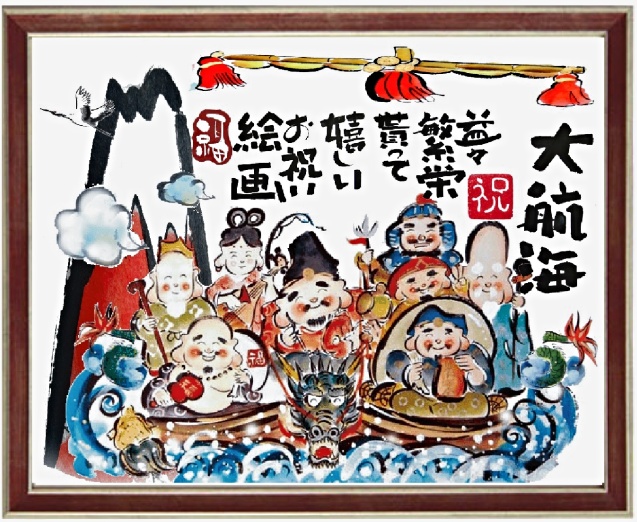 大航海
祝
益々
繁栄
貰って
嬉しい
お祝い
絵画
福